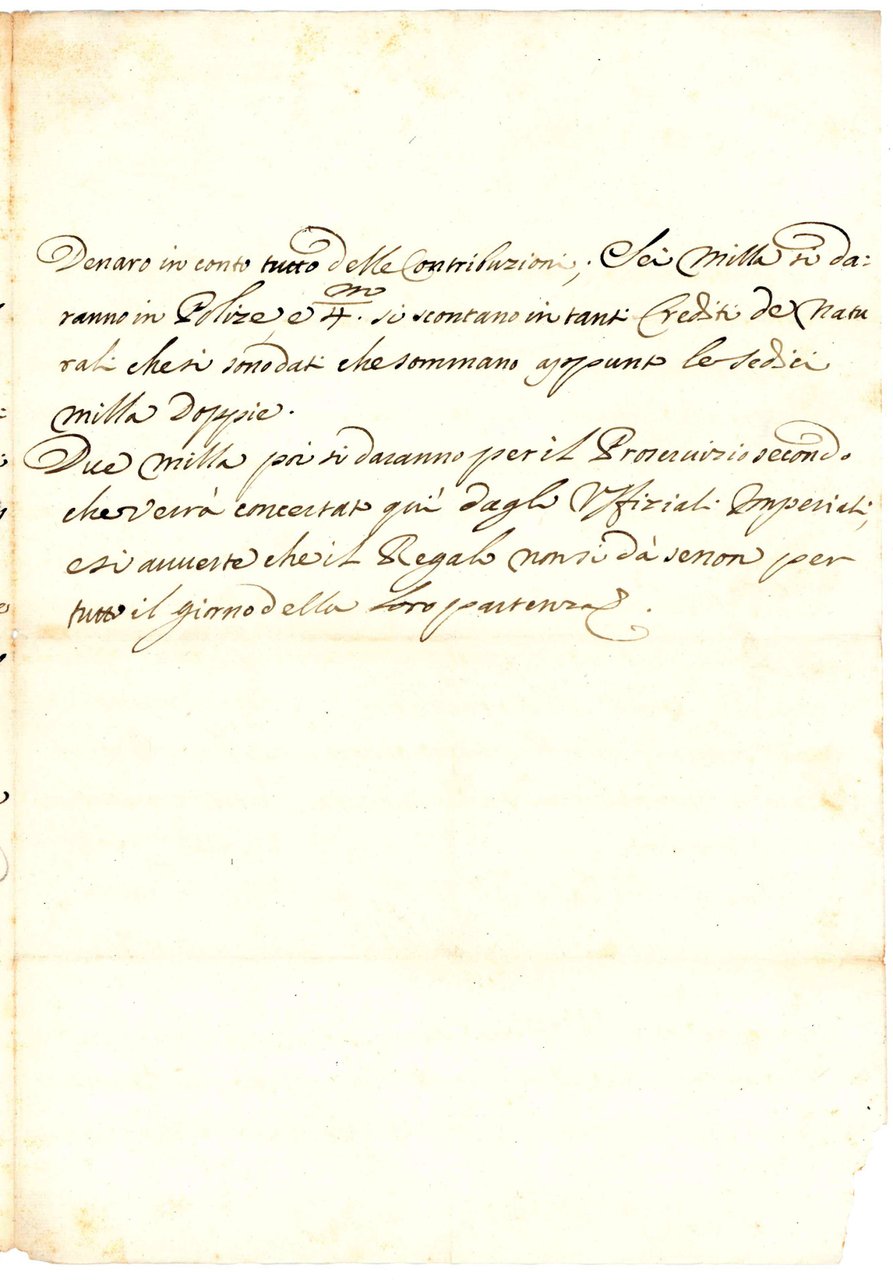 Denaro in conto tutto delle Contribuzioni; Sei milla si da:
ranno in Polize, e 4.m si scontano in tanti Crediti de Natu
rali che si sono dati che sommano appunto le sedici
milla Doppie.
Due milla poi si daranno per il Proservizio secondo
che verrà concertato quì dagli Uffiziali Imperiali,
e si avverte che il Regalo non si dà se non per
tutto il giorno della loro partenza.